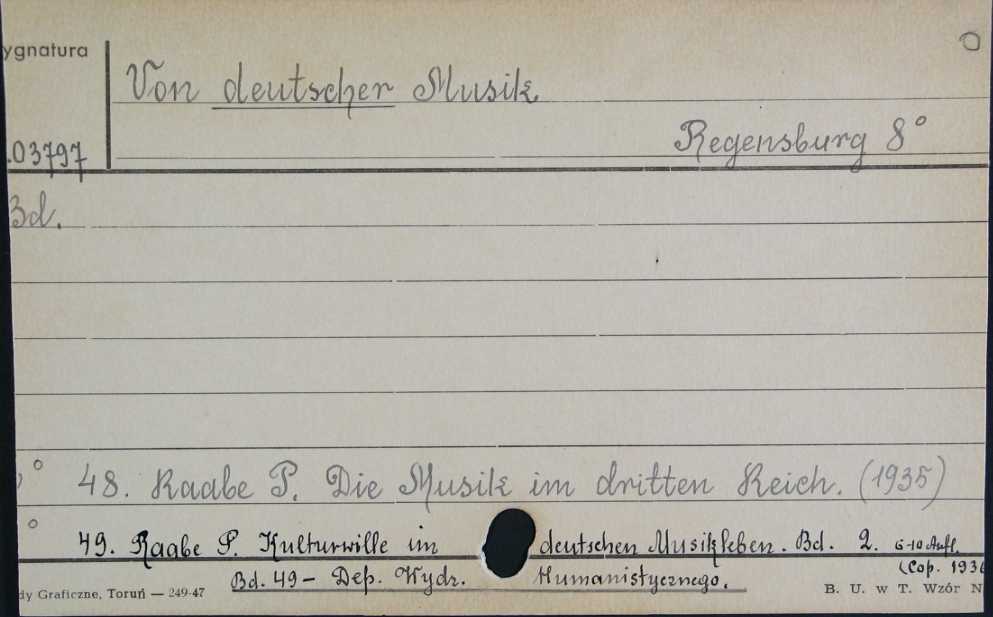 ygnatura
Von deutscher Musik
Regensburg 8°
.03797
Bd.
° 48. Raabe P. Die Musik im dritten Reich. (1935)
° 49. Raabe P. Kulturwille im deutschen Musikleben. Bd. 2. 6-10 Aufl.
(Cop. 193
Bd. 49 — Dep. Wydz. Humanistycznego.
dy Graficzne, Toruń — 249-47
B. U. w T. Wzór N